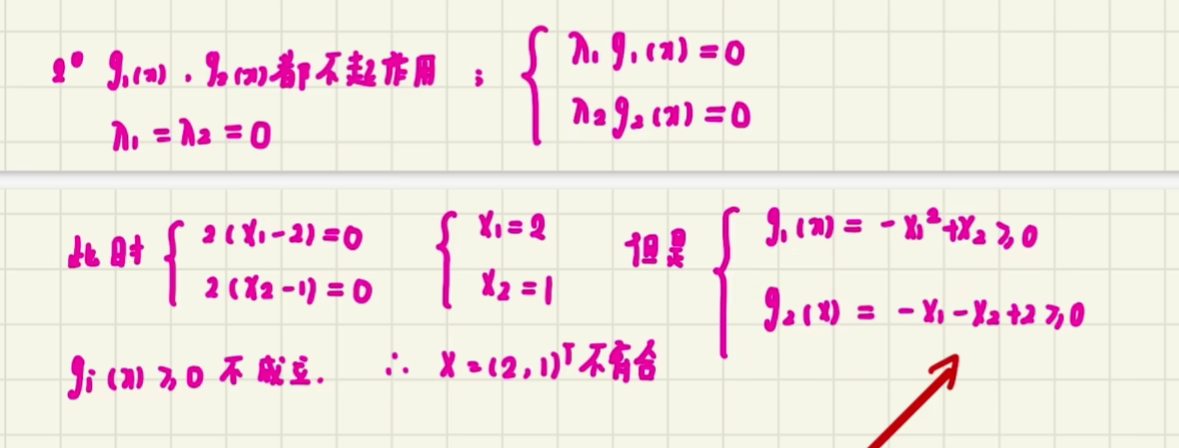 2° g₁(x) . g₂(x)都不起作用 ; { λ₁g₁(x)=0
λ₂g₂(x)=0
λ₁=λ₂=0
此时 { 2(x₁-2)=0 { x₁=2 但是 { g₁(x) = -x₁²+x₂≥0
2(x₂-1)=0 x₂=1 g₂(x) = -x₁-x₂+2≥0
gᵢ(x)≥0 不成立. ∴ x=(2,1)ᵀ不符合